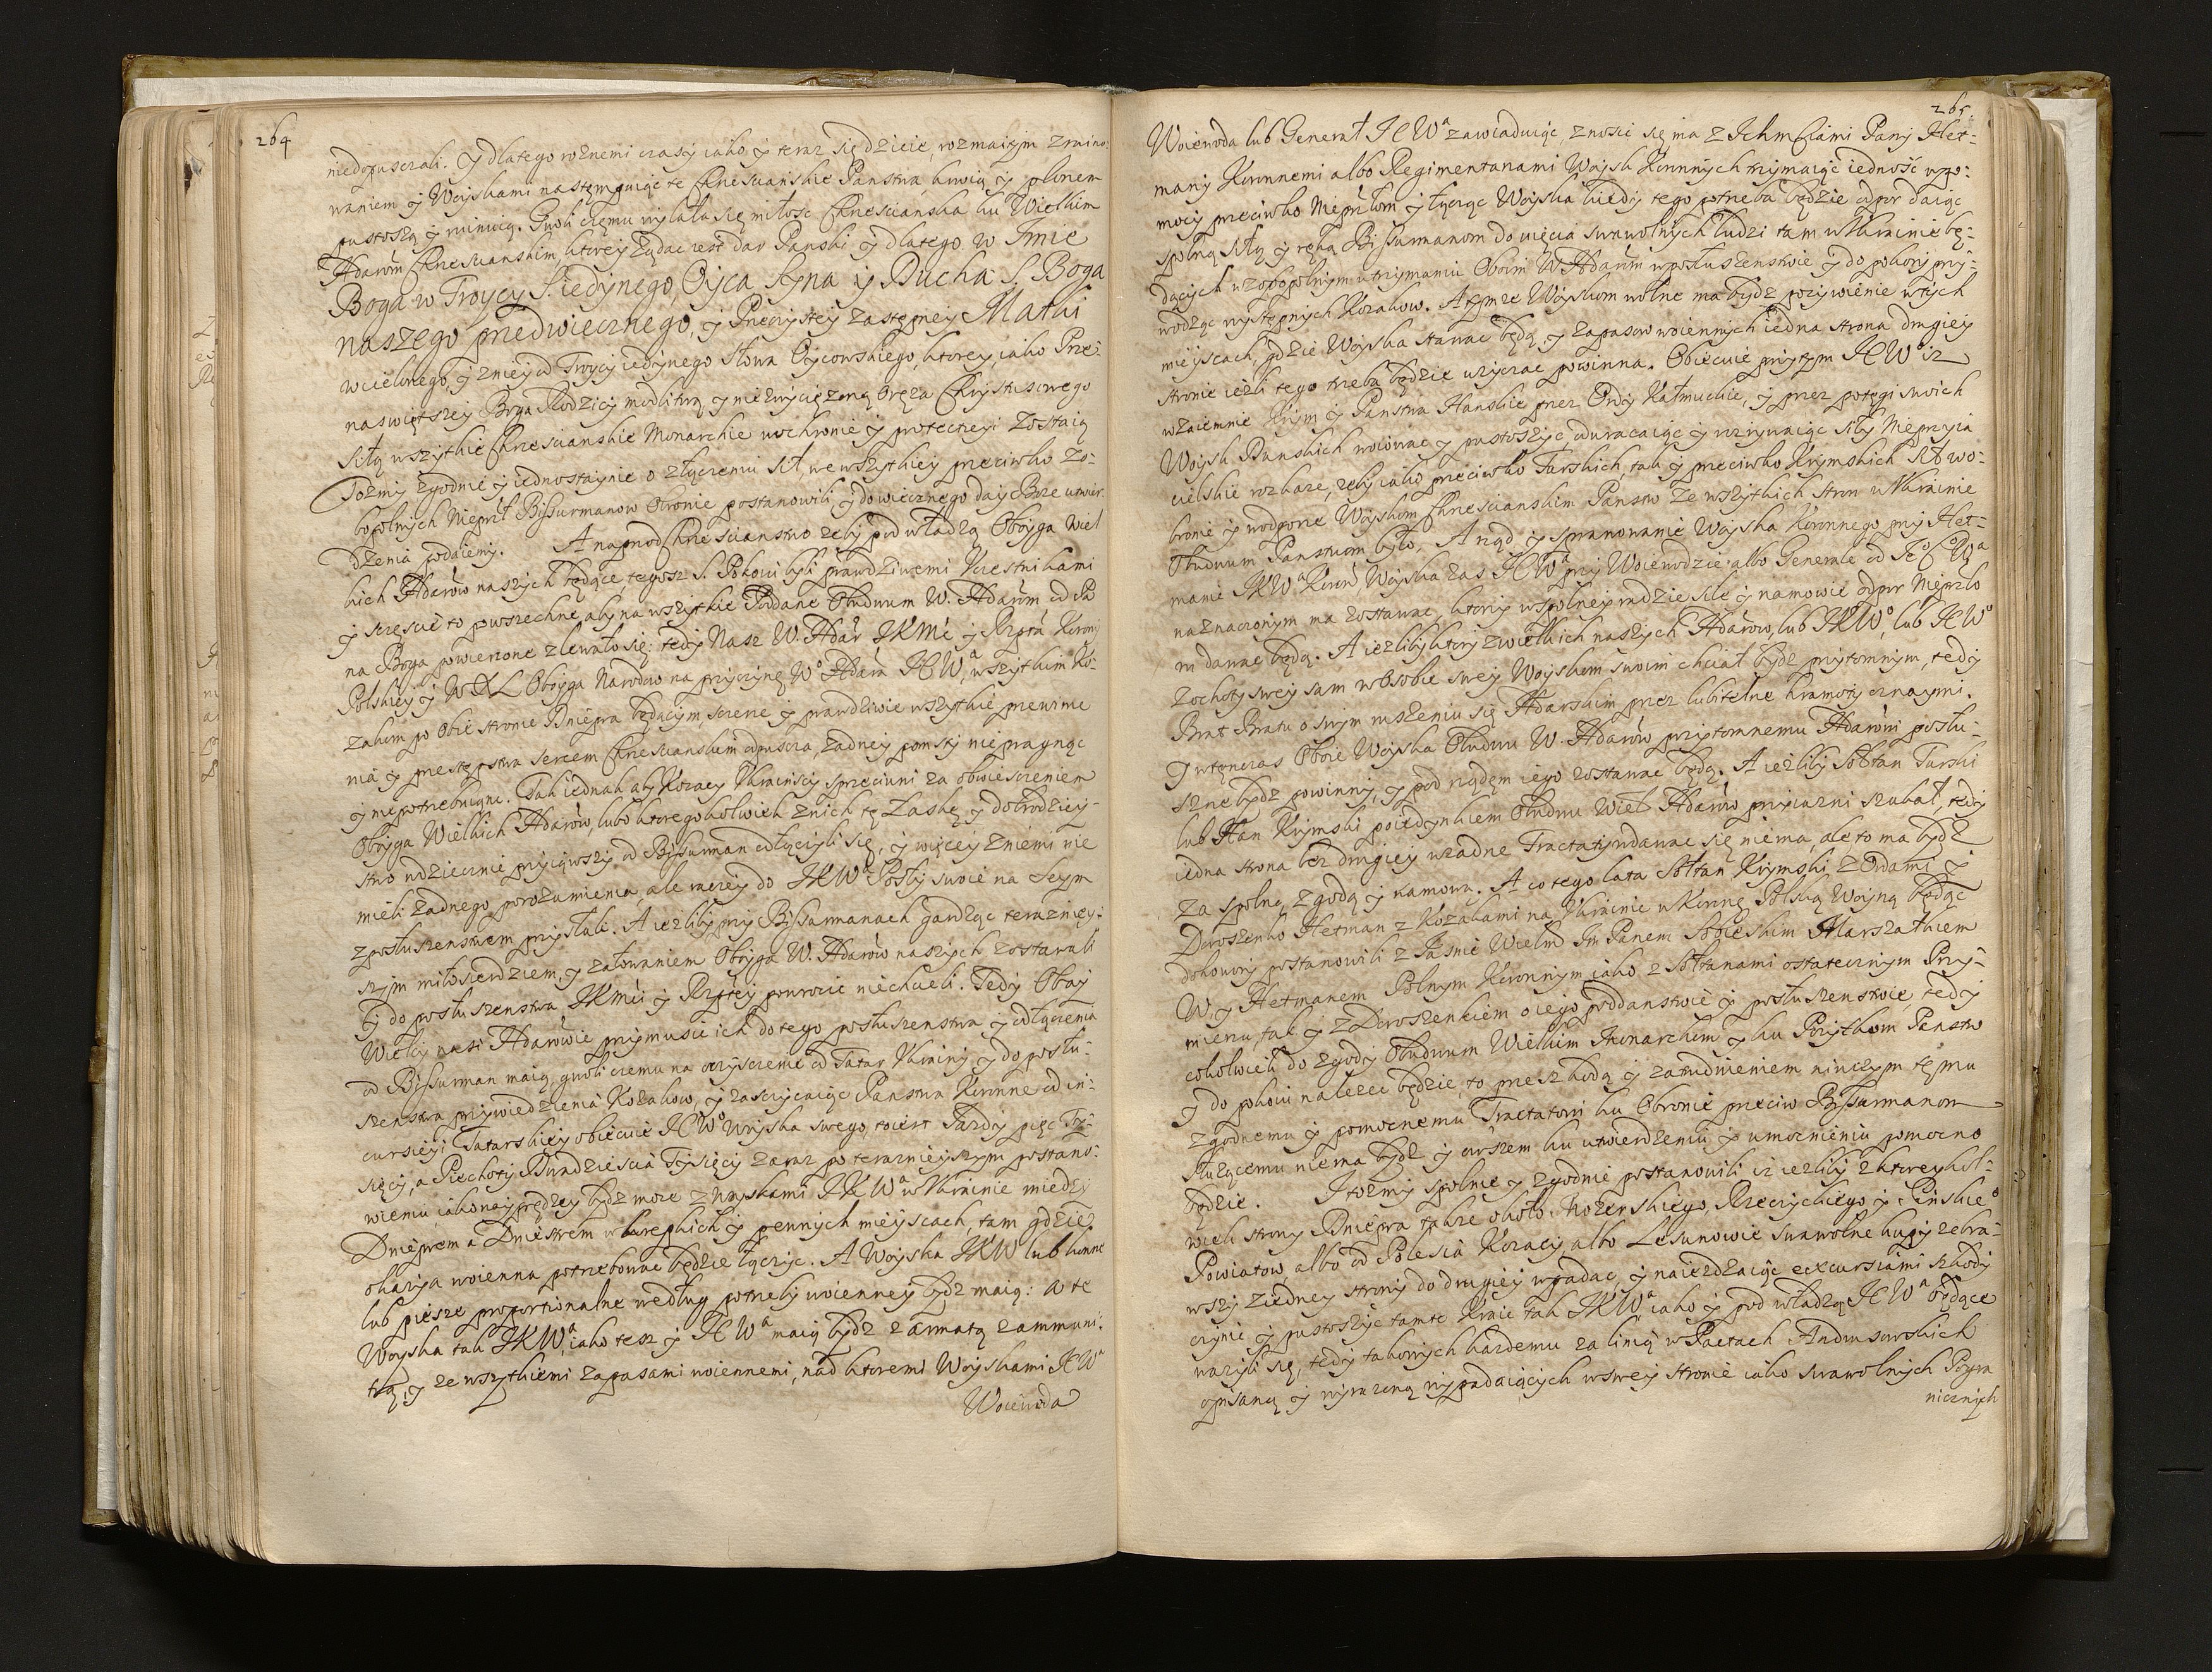 264
niedopuszczali. Y dlatego roznemi czasy iako y teraz się dzieie, rozmaitym zruino:
waniem y Woyskami następuiąc te Chrescianskie Panstwa krwią y płonem
pustoszą y ruinuią. Gwoli czemu wylała się miłosc Chrescianska ku Wielkim
Hdarom Chrescianskim, ktorey żądac iest dar Panski y dlatego w Imie
Boga w Troycy S. iedynego, Oyca Syna y Ducha S. Boga
naszego przedwiecznego, y Przeczystey zastępney Matki
wcielonego, y zniey od Troycy iedynego Słowa Oycowskiego, ktorey, iako Prze:
naswiętszey Boga Rodzicy modlitwą y niezwyciężoną Oręża Chrystusowego
siłą wszytkie Chrescianskie Monarchie uochronie y protectiey zostaią
Tożmy zgodnie y iednostaynie o złączeniu sił, we wszytkiey przeciwko zo:
bopolnych Nieprzł Bissurmanow Obronie postanowili y do wiecznego day Boze utwir:
dzenia podaiemy. A naprzod Chrescianstwo zeby pod władzą Oboyga Wiel
kich Hdarow naszych będące tegosz S. Pokoiu byli prawdziwemi Uczestnikami
y sczęscie to powszechne, aby na wszytkie Poddane Obudwum W. Hdarom od Pa
na Boga powierzone zlewało się: tedy Nasz W. Hdar JKMć y Rzptá Korony
Polskiey y W X L Oboyga Narodow na przyczynę Wo Hdara JCWa, wszytkim Ko:
zakom po Obie stronie Dniepra będącym szczerze y prawdziwie wszytkie przewinie
nia y przestępstwa sercem Chrescianskim odpuszcza, żadney pomsty niepragnąc
y niepotrzebuiąc. Tak iednak aby Kozacy Ukrainscy sprzeciwni za obwiesczeniem
Oboyga Wielkich Hdarow, lubo ktoregokolwiek z nich tę Łaskę y dobrodziey-
stwo wdziecznie przyiąwszy od Bissurman odłączyli się, y więcey z niemi nie
mieli żadnego porozumienia, ale raczey do JKWa Posły swoie na Seym
z posłuszenstwem przysłali. A iezliby przy Bissurmanach gardząc terazniey:
szym miłosierdziem, y załowaniem Oboyga W. Hdarow naszych zostawali
y do posłuszenstwa JKMci y Rzptey powrocic niechcieli. Tedy Obay
Wielcy nasi Hdarowie przymusic ich do tego posłuszenstwa y odłączenia
od Bissurman maią, gwoli czemu na oczysczenie od Tatar Ukrainy y do posłu:
szenstwa przywiedzienia Kozakow, y zasczycaiąc Panstwa Koronne od in:
cursiey Tatarskiey obiecuie JCWo woyska swego, toiest Jazdy pięc Ty:
sięcy, a Piechoty Dwadziescia Tysięcy zaraz po terazniejszym postano:
wieniu, iako nayprędzey bydz moze z woyskami JKWa w Ukrainie miedzy
Dnieprem a Dniestrem w krepkich y pewnych mieyscach, tam gdzie
okazya woienna potrzebowac będzie łączyc. A Woyska JKW lub konne
lub piesze proportionalne według potrzeby woienney bydz maią: a te
Woyska tak JKWa, iako tesz y JCWa maią bydz z Armatą z ammuni:
tią, y ze wszytkiemi zapasami woiennemi, nad ktoremi Woyskami JCWa
Woiewoda
265
Woiewoda lub Generał JCWa zawiaduiąc, znosic się ma z Ichm Ciami Pany Het-
many Koronnemi albo Regimentarzami Woysk Koronnych trzymaiąc iednosc wpo:
mocy przeciwko Nieprzłom y łącząc Woyska kiedy tego potrzeba będzie odpor daiąc
spolną siłą y ręką Bissurmanom do uięcia swawolnych Ludzi tam w Ukrainie bę:
dących w zobopolnym utrzymaniu Oboim W. Hdarom w posłuszenstwie y do pokory przy:
wodząc występnych Kozakow. A tymze Woyskom wolne ma bydz pozywienie w tych
mieyscach, gdzie Woyska stawac będą, y zapasow woiennych iedna strona drugiey
stronie iezli tego trzeba będzie uzyczac powinna. Obiecuie przytym JCWo iz
wzaiemnie Krym y Panstwa Hanskie przez Ordy Kałmuckie, y przez potęgi swoich
Woysk Dunskich woiowac y pustoszyc, odwracaiąc y wzrywaiąc siły Nieprzyia
cielskie rozkaze, zeby iako przeciwko Turskich, tak y przeciwko Krymskich sił w o:
bronie y wodporze Woyskom Chrescianskim Panstw ze wszytkich stron w Ukrainie
Obudwum Panstwom było. A rząd y sprawowanie Woyska Koronnego przy Het-
manie JKWa Koron, Woyska zas JCWa przy Woiewodzie albo Generale od Jo CoWa
naznaczonym ma zostawac, ktorzy w spolney radzie sile y namowie odpor Nieprzło
m dawac będą. A iezliby ktory z wielkich naszych Hdarow, lub JKWo, lub JCWo
z ochoty swey sam w Osobie swey Woyskom swoim chciał bydz przytomnym, tedy
Brat Bratu o swym ruszeniu się Hdarskim przez lubitelne hramoty oznaymi.
Y wtęnczas Oboie Woyska Obudwu W. Hdarow przytomnemu Hdarowi posłu-
szne bydz powinny, y pod rządęm iego zostawac będą. A iezliby Sołtan Turski
lub Han Krymski poiedynkiem Obudwu Wiel. Hdarow przyiazni szukał, tedy
iedna strona bez drugiey wzadne Tractaty wdawac się niema, ale to ma bydz
za spolną zgodą y namową. A co tego lata Sołtan Krymski z Ordami y
Doroszenko Hetman z Kozakami na Ukrainie w Koronę Polską Woyną będąc
dokowory postanowili z Jasnie Wielm Jm Panem Sobieskim Marszałkiem
W. y Hetmanem Polnym Koronnym iako z Sołtanami ostatecznym Przy-
mieru, tak y z Doroszenkiem o iego poddanstwie y posłuszenstwie, tedy
cokolwiek do zgody Obudwum Wielkim Monarchom y ku Pozytkom Panstw
y do pokoiu nalezec będzie, to przeszkodą y zatrudnieniem ninczym tęmu
zgodnemu y pomocnemu Tractatowi ku Obronie przeciw Bissurmanom
słuzącemu niema bydz y owszem ku utwierdzeniu y umocnieniu pomocno
będzie. Y tozmy spolnie y zgodnie postanowili iz iezliby z ktoreykol-
wiek strony Dniepra takze około Mozerskiego, Rzeczyckiego y Pinskieo
Powiatow albo od Polesia Kozacy albo Lesunowie swawolne kupy zebra-
wszy z iedney strony do drugiey wpadac, y naiezdzaiąc excursiami szkody
czynic y pustoszyc tamte Kraie tak JKWa iako y pod władzą JCWa będące
wazyli się, tedy takowych kazdemu za linią w Pactach Andruszowskich
opisaną y wyrazoną wypadaiących w swey stronie iako swawolnych Pogra
nicznych